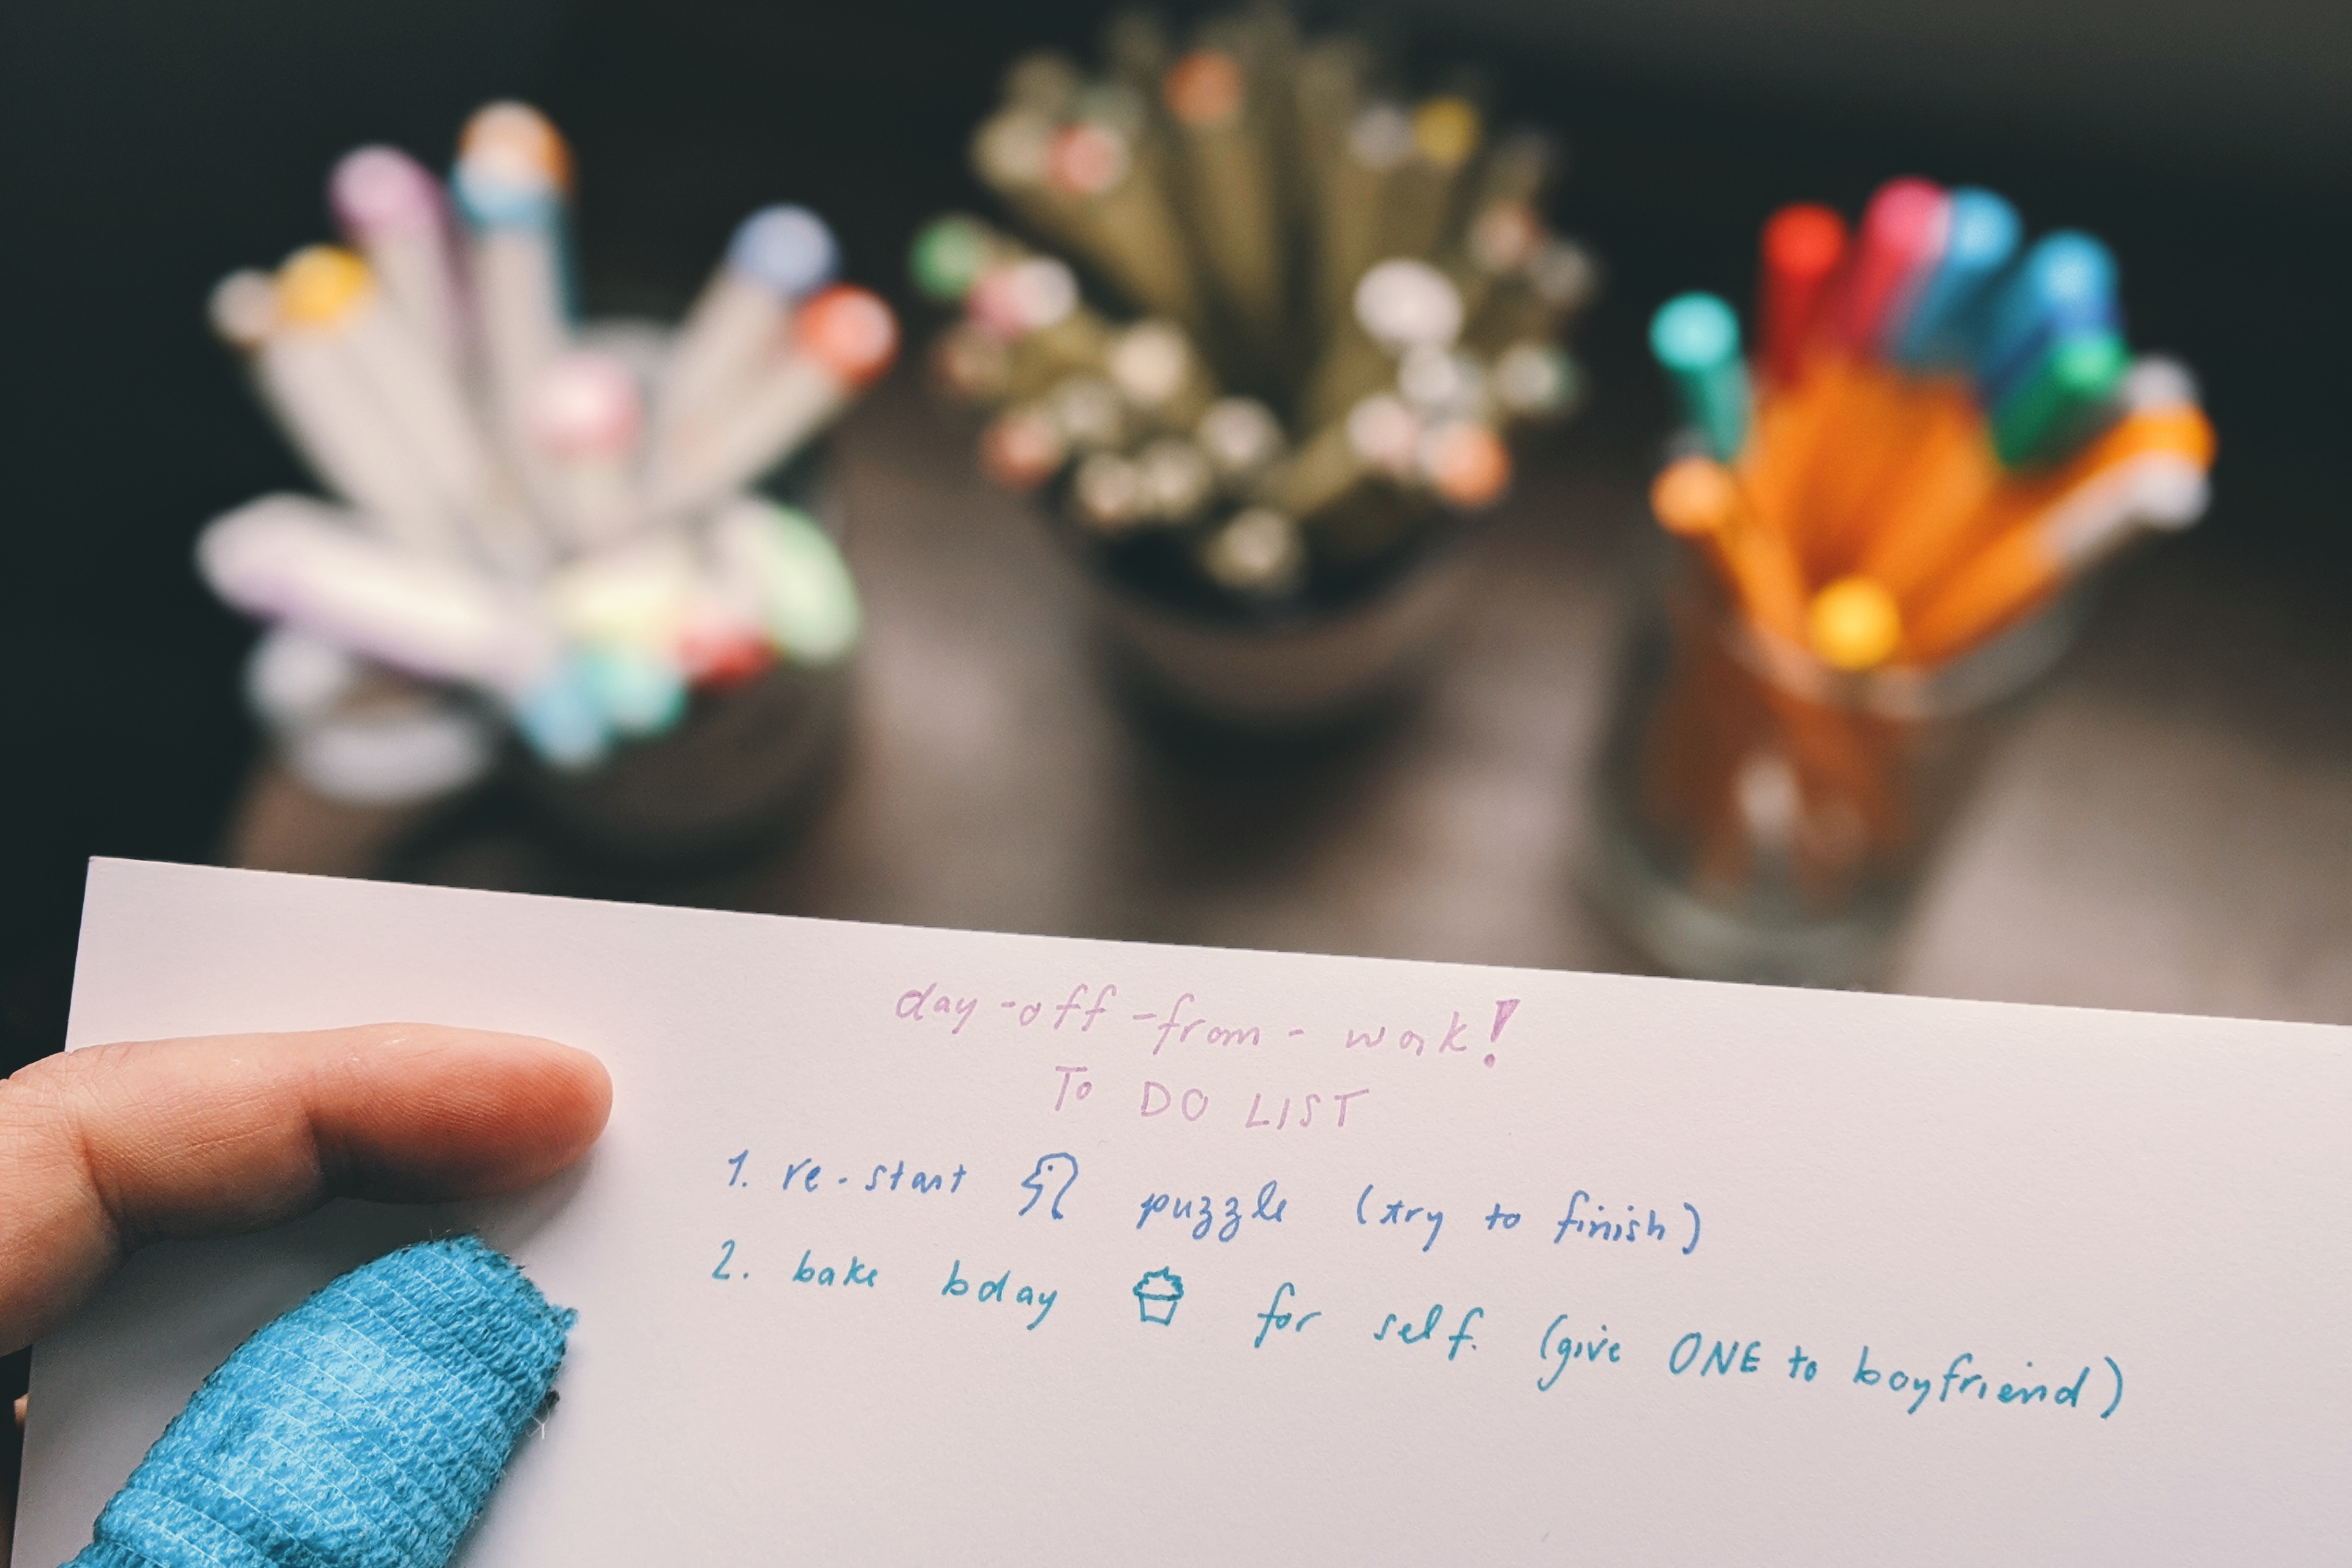 day-off-from-work!
To DO LIST
1. re-start puzzle (try to finish)
2. bake bday for self. (give ONE to boyfriend)